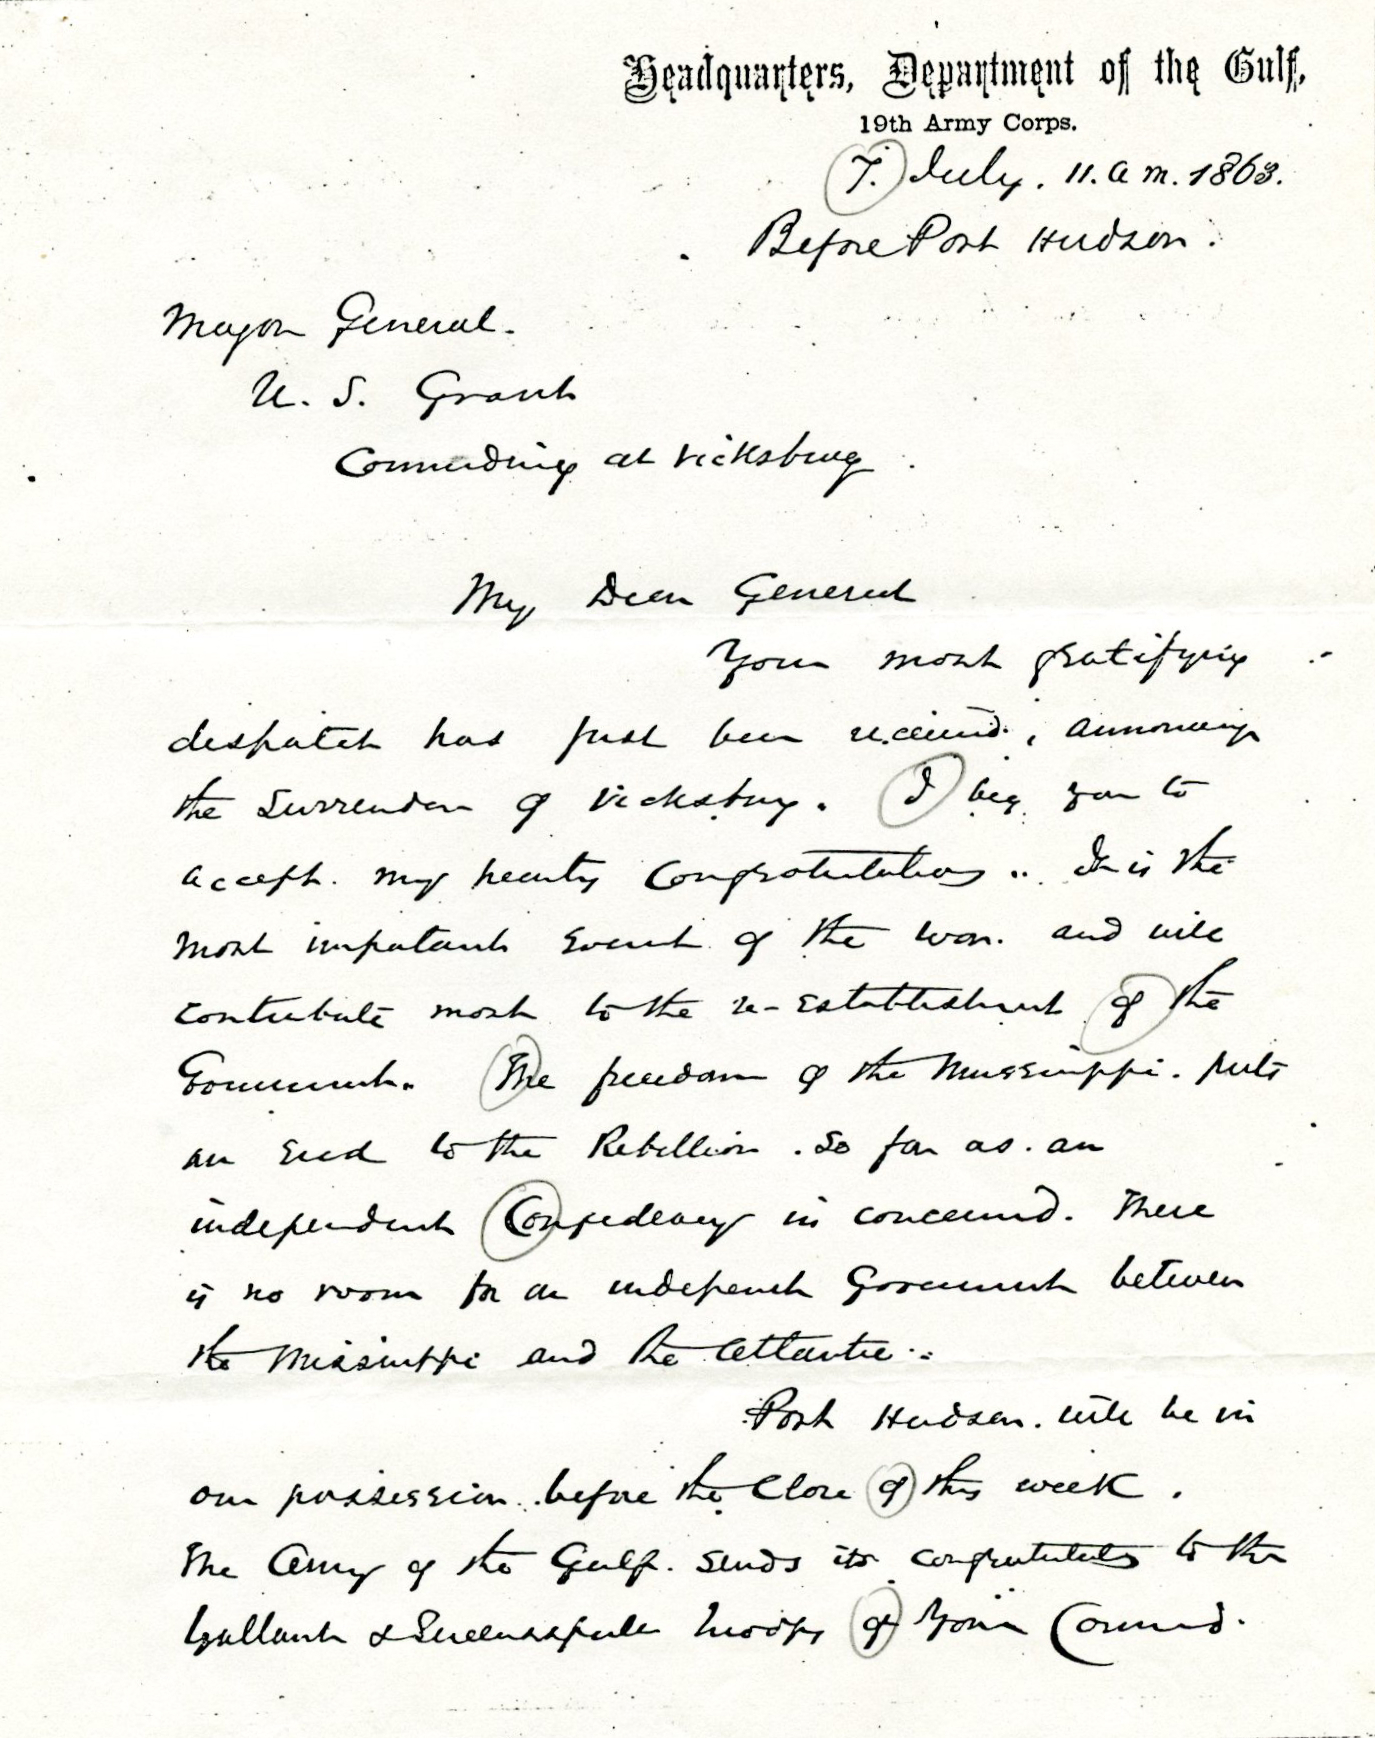 Headquarters, Department of the Gulf,
19th Army Corps.
7. July. 11. a m. 1863.
Before Port Hudson.
Major General.
U. S. Grant
Commanding at Vicksburg.
My Dear General
Your most gratifying
despatch has just been received, announcing
the Surrender of Vicksburg. I beg you to
accept. my hearty Congratulations.. It is the
most important Event of the War. and will
contribute most to the re-establishment of the
Government. The freedom of the Mississippi. puts
an End to the Rebellion. So far as. an
independent Confederacy is concerned. There
is no room for an independent Government between
the Mississippi and the Atlantic..
Port Hudson. will be in
our possession. before the Close of this week.
The Army of the Gulf. sends its congratulations to the
Gallant & Successful troops of Your Command.